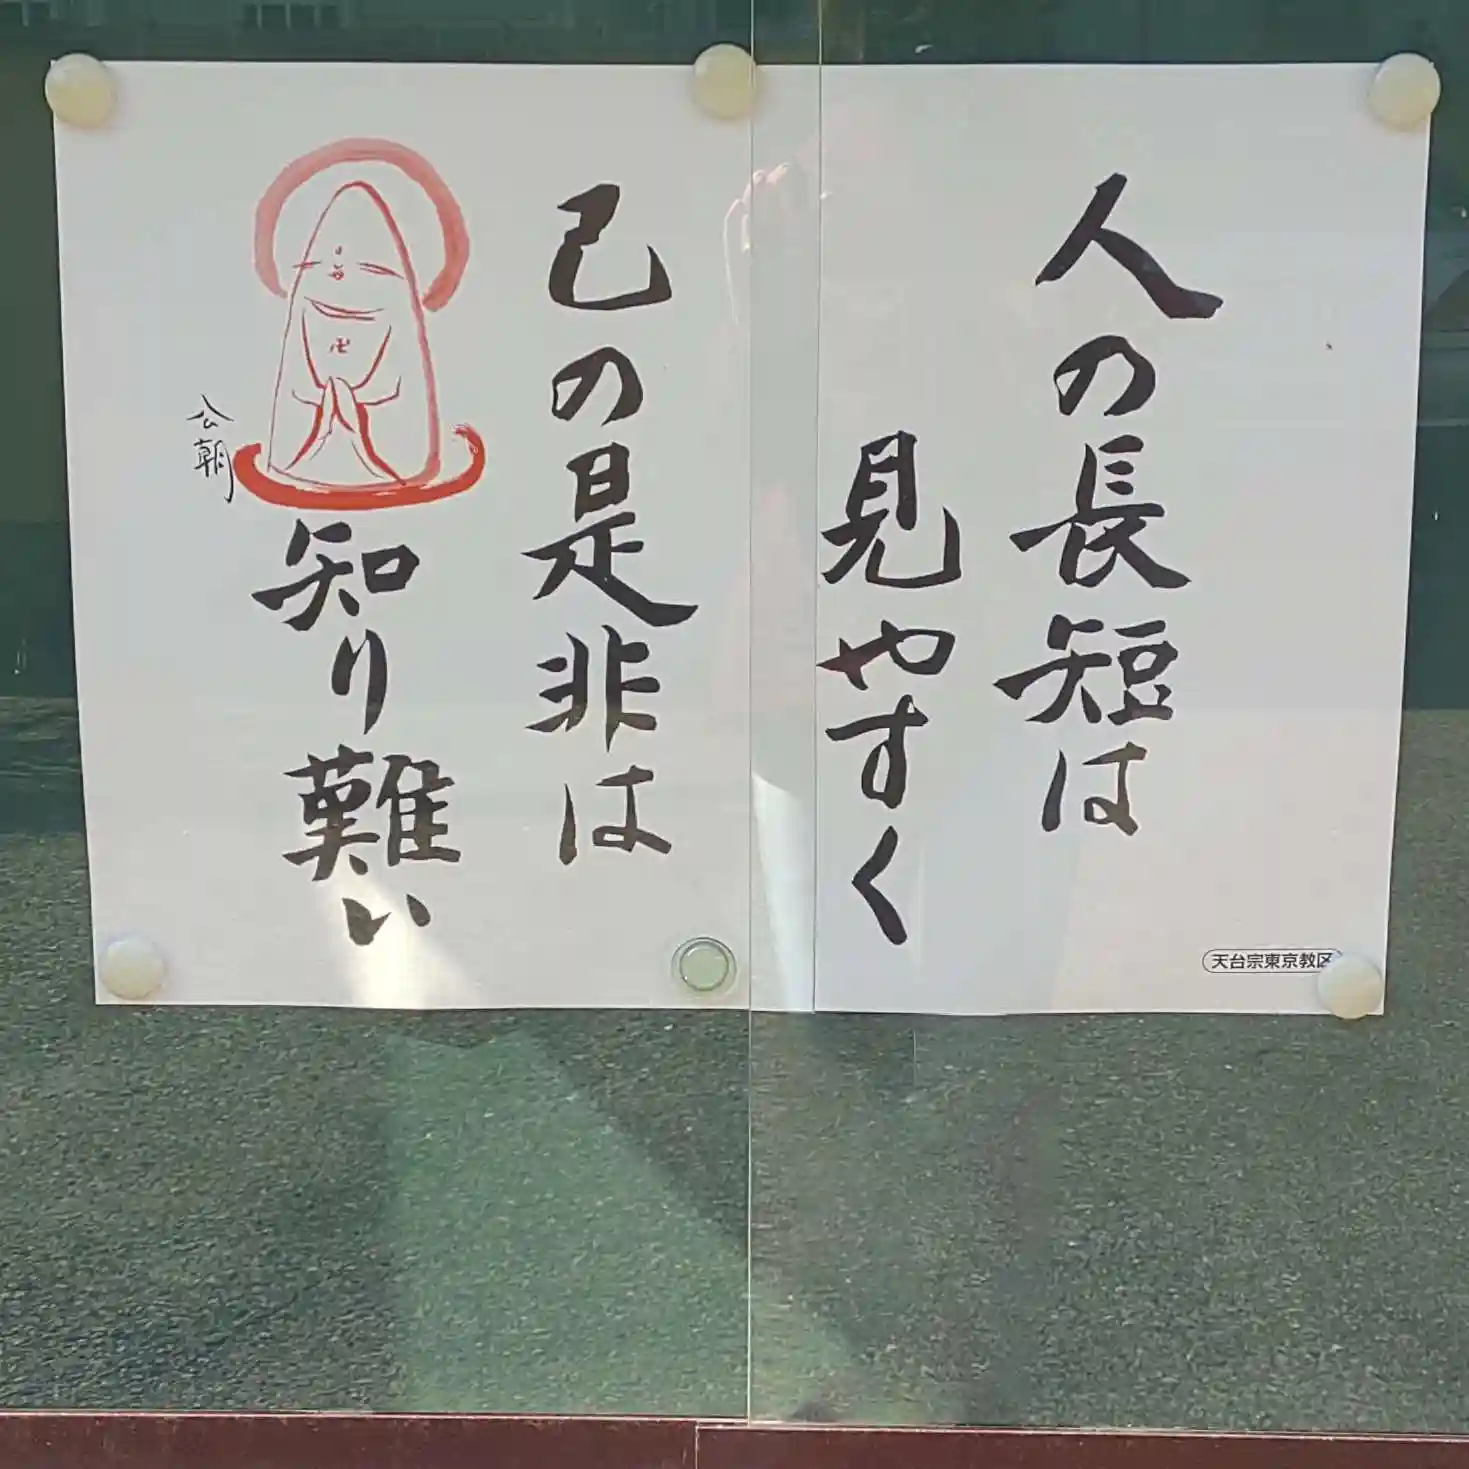 人の長短は
見やすく
己の是非は
知り難い
公朝
卍
天台宗東京教区